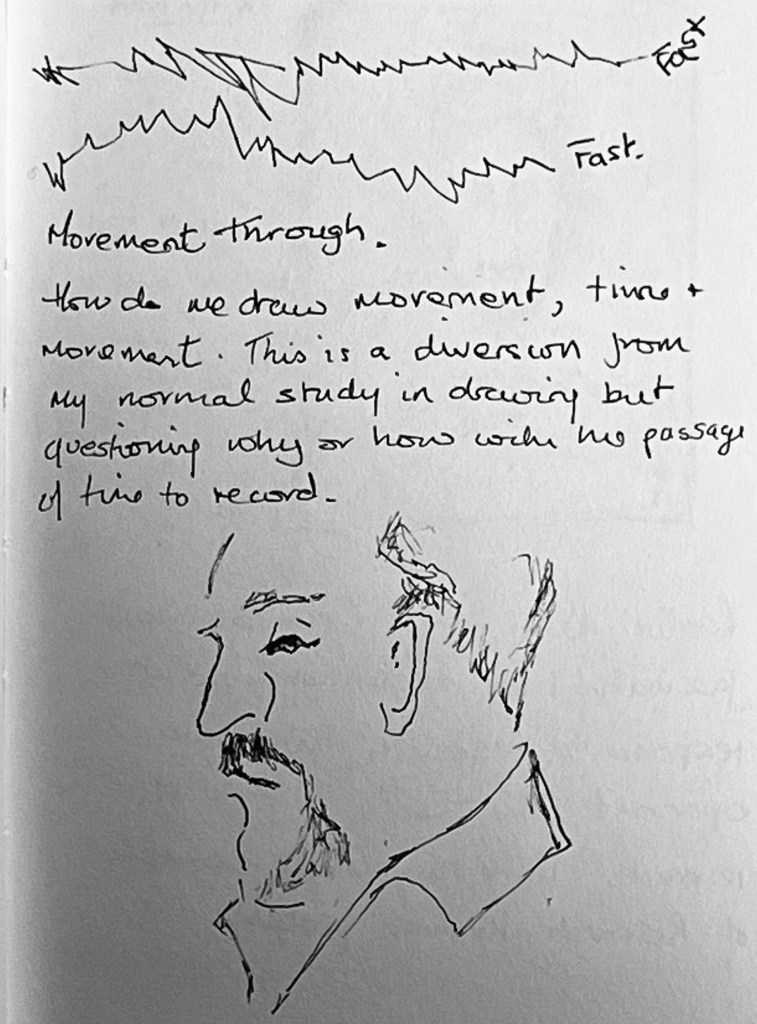 Fast
Fast.
Movement through.
How do we draw movement, time +
movement. This is a diversion from
my normal study in drawing but
questioning why or how with the passage
of time to record.